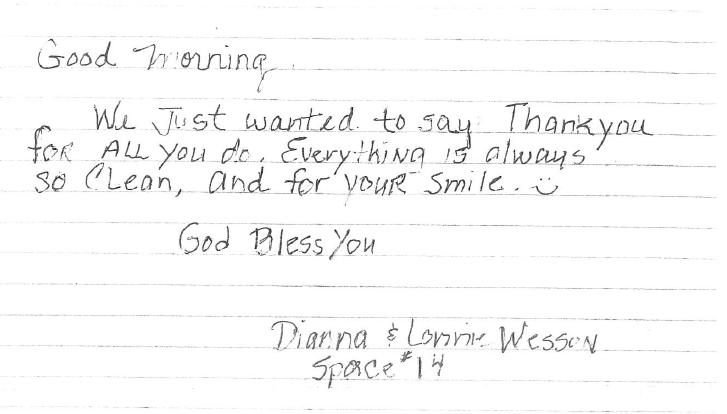 Good Morning
We Just wanted to say Thankyou
for ALL you do. Everything is always
so Clean, and for your smile. ☺
God Bless You
Dianna & Lonnie Wesson
Space #14